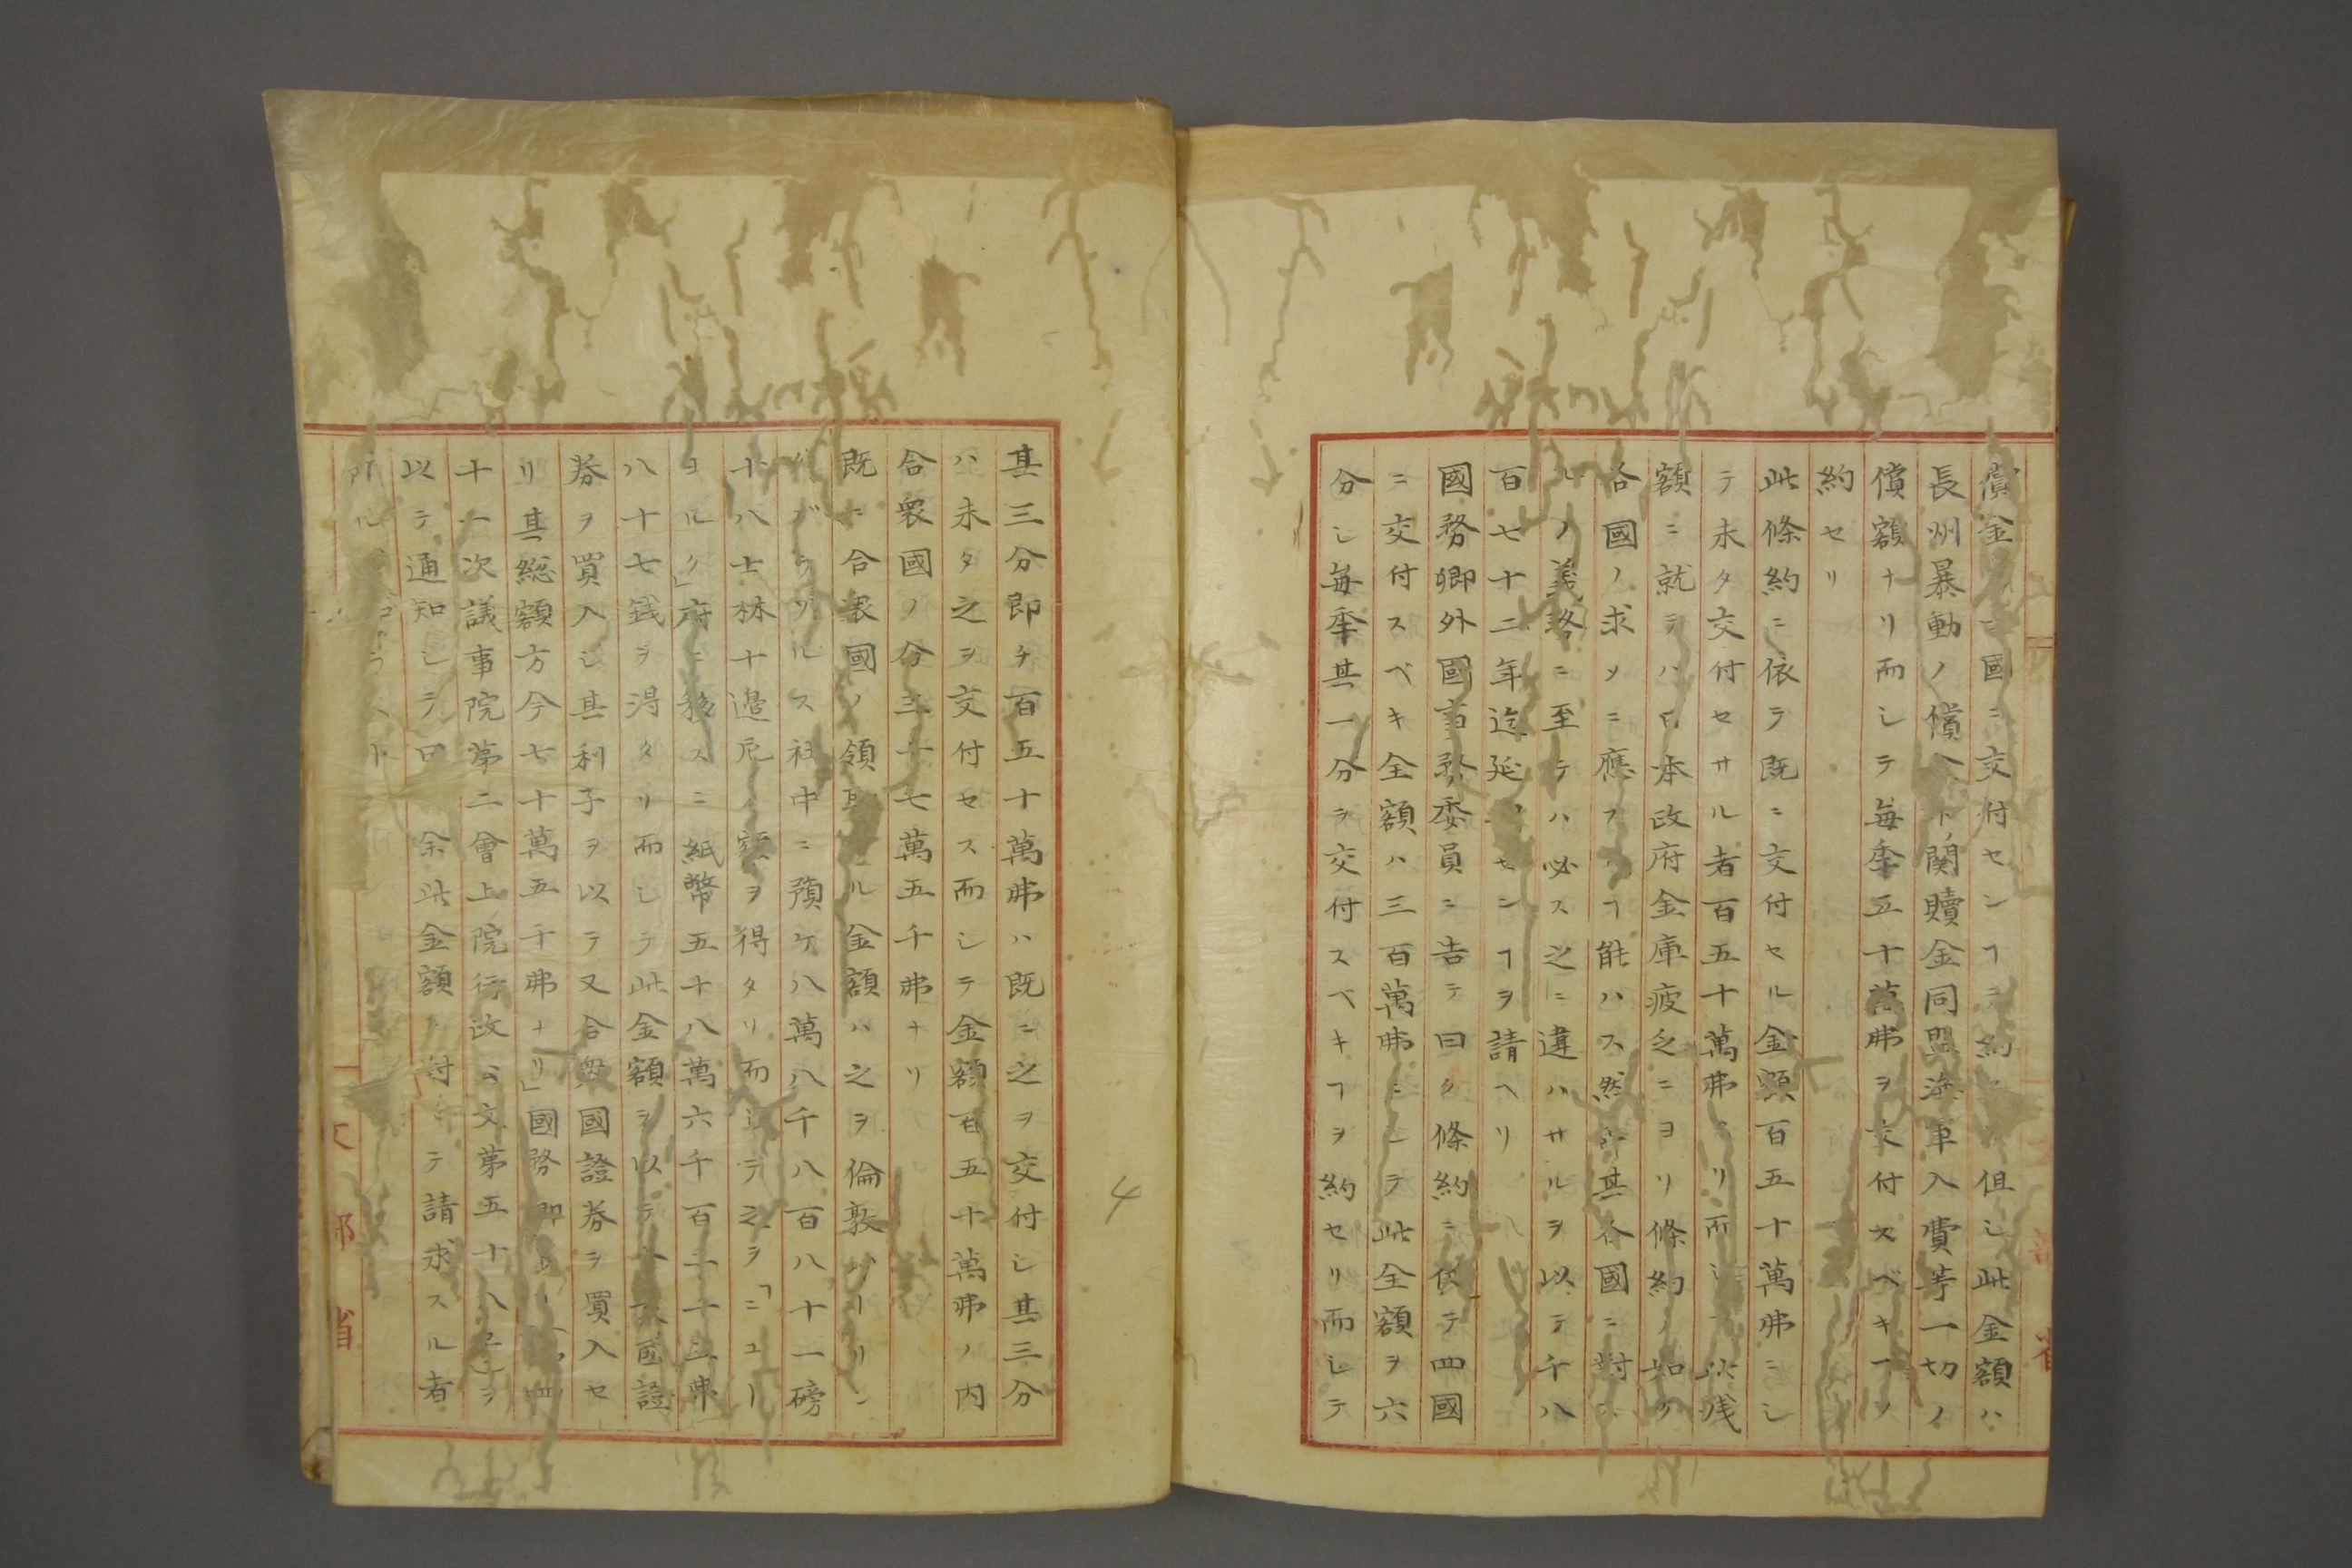 償金 國ニ交付センヿ 約 但シ此金額ハ
長州暴動ノ償金下ノ関贖金同盟海軍入費等一切ノ
償額ナリ而シテ毎季五十萬弗ヲ交付スベキヿヲ
約セリ
此條約ニ依テ既ニ交付セル金額百五十萬弗ニシ
テ未タ交付セサル者百五十萬弗 リ而 此残
額ニ就テハ日本政府金庫疲乏ニヨリ條約ノ如ク
各國ノ求メニ應 ヿ能ハス然 其各國ニ對
ノ義務ニ至テハ必ス之ニ違ハサルヲ以テ千八
百七十二年迄延 センヿヲ請ヘリ
國務卿外國事務委員ニ告テ曰ク條約ニ依テ四國
ニ交付スベキ全額ハ三百萬弗ニシテ此全額ヲ六
分シ毎季其一分ヲ交付スベキヿヲ約セリ而シテ
其三分即チ百五十萬弗ハ既ニ之ヲ交付シ其三分
ハ未タ之ヲ交付セス而シテ金額百五十萬弗ノ内
合衆國ノ分三十七萬五千弗ナリ
既ニ合衆國ノ領 ル金額ハ之ヲ倫敦 リン
ルス社中ニ預ケ八萬八千八百八十一磅
十八 十邉尼ノ額ヲ得タリ而シテ之ヲ「ニユー
ヨルク」府ニ移スニ紙幣五十八萬六千百二十五弗
八十七銭ヲ淂タリ而シテ此金額ヲ以テ合衆國證
券ヲ買入シ其利子ヲ以テ又合衆國證券ヲ買入セ
リ其総額方今七十萬五千弗ナリ」國務卿
十一次議事院第二會上院行政公文第五十八 ヲ
以テ通知シテ曰 余此金額 対 テ請求スル者
ル
文部省
4